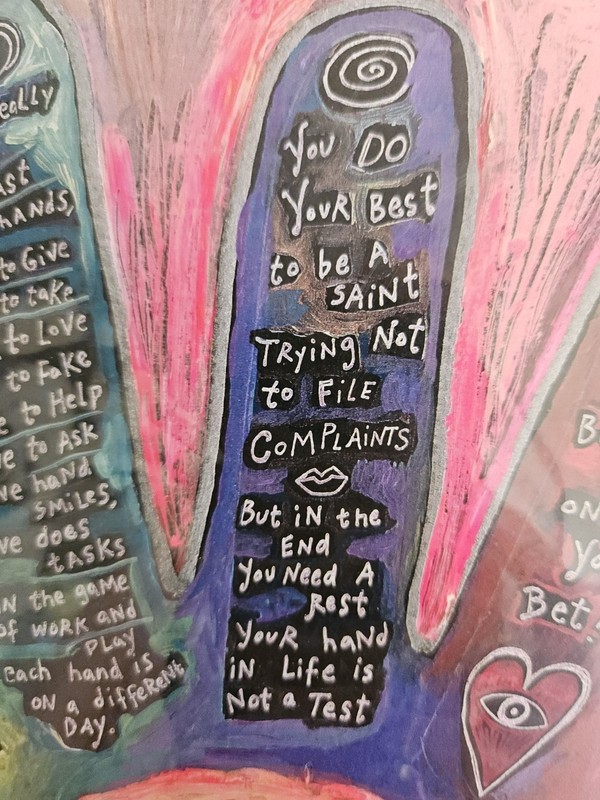 eally
ast
hands,
to Give
to take
to Love
to Fake
e to Help
ve to Ask
ve hand
smiles,
ve does
tasks
in the game
of work and
play
each hand is
on a different
Day.
You DO
Your Best
to be A
SAiNt
TRyiNg Not
to FiLE
COMPLAiNTS
But iN the
END
You Need A
Rest
Your haNd
iN Life is
Not a Test
B
on
Yo
Bet!